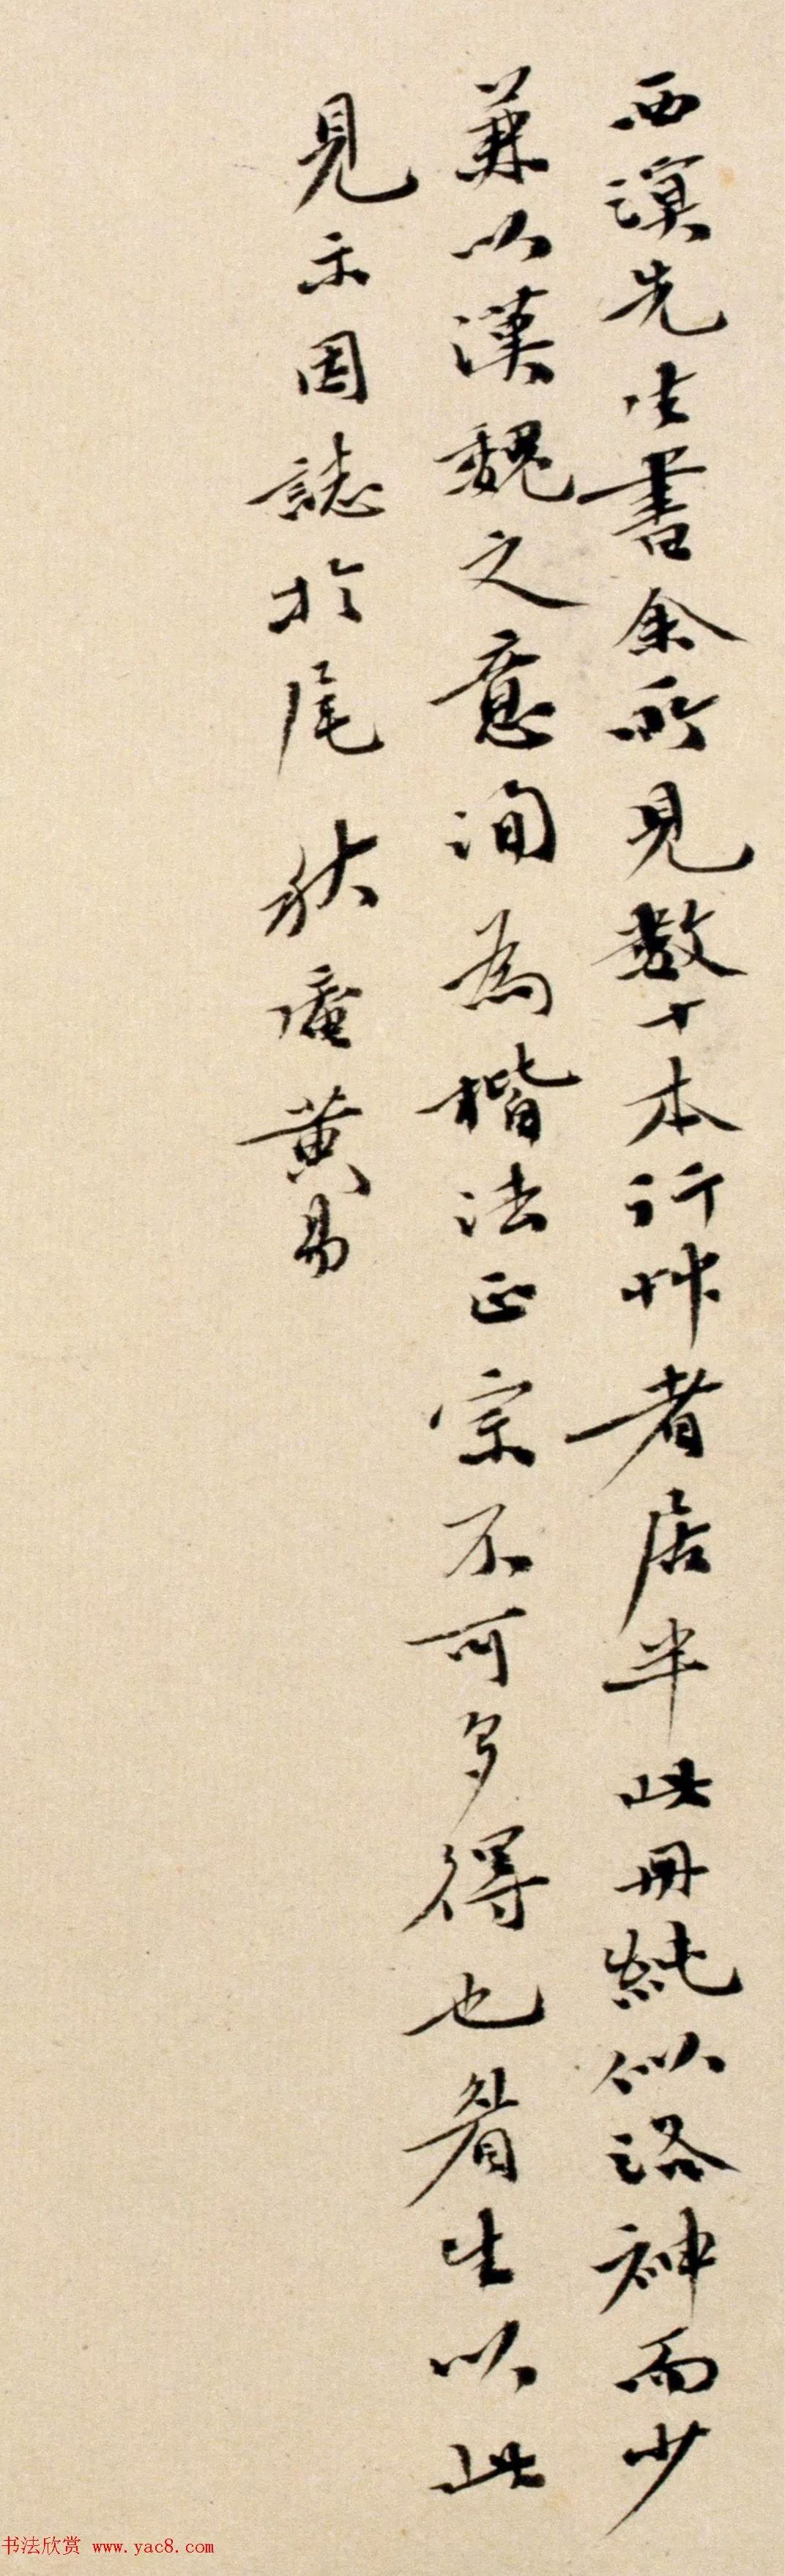 西溟先生書余所見數十本行艸者居半此冊純似洛神而少
兼以漢魏之意洵為楷法正宗不可多得也眉生以此
見示因誌於尾 秋盦黄易
书法欣赏 www.yac8.com